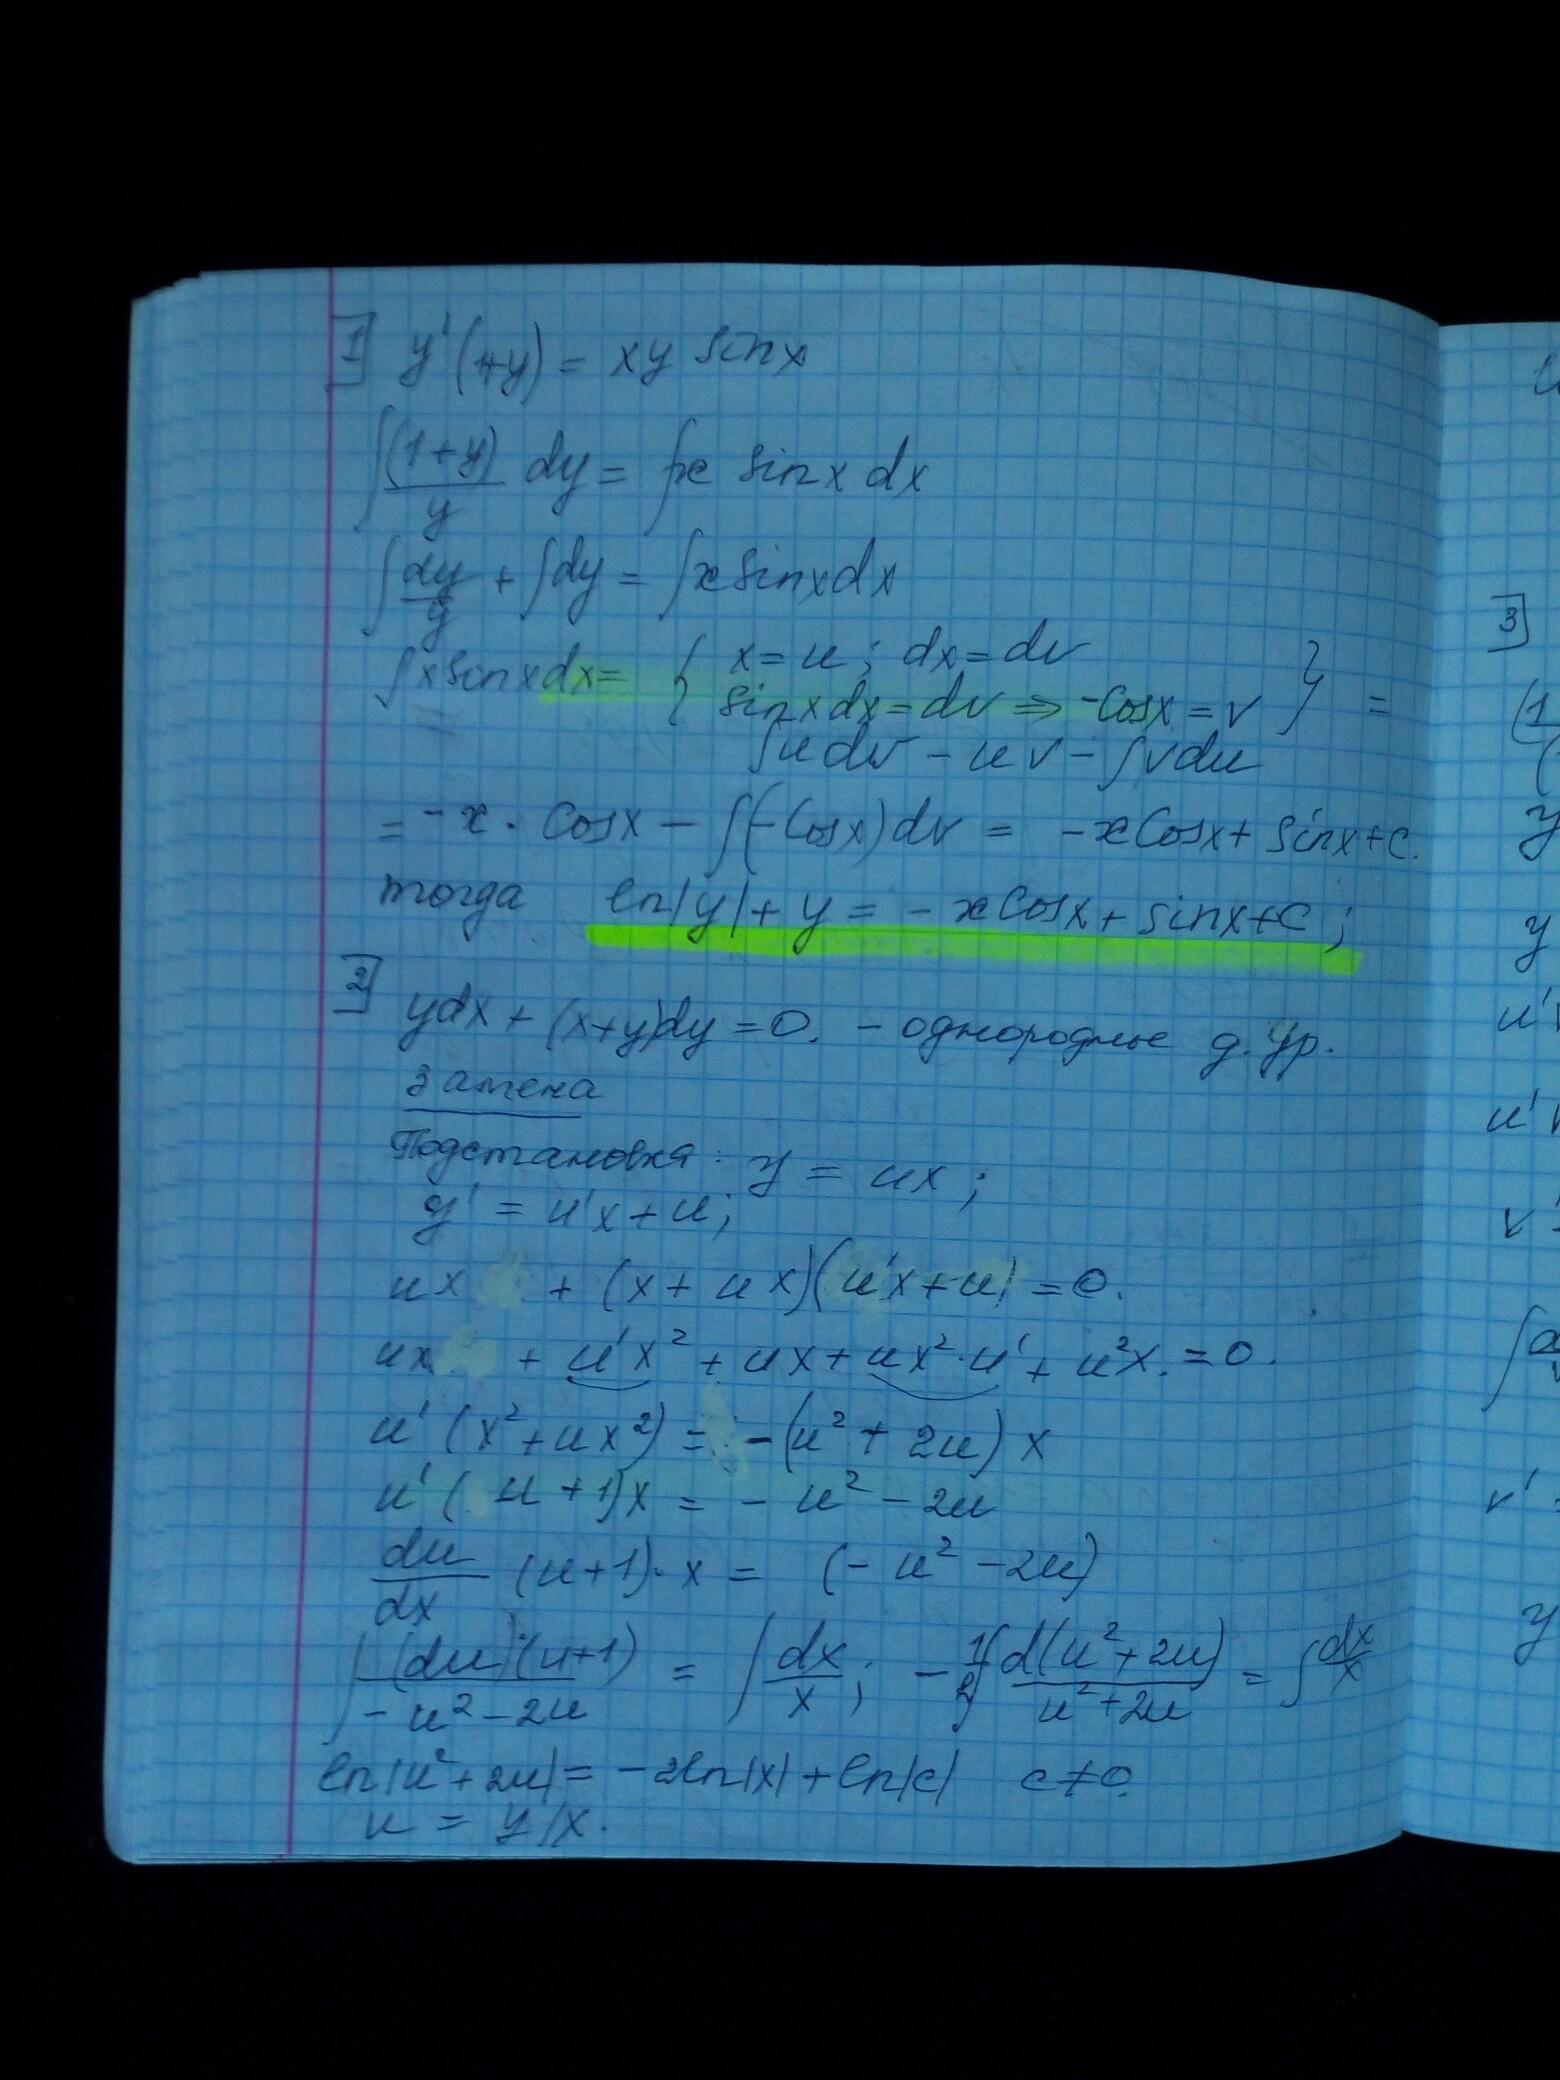 1] y'(1+y) = xy sinx
∫ (1+y)/y dy = ∫ x sinx dx
∫ dy/y + ∫dy = ∫x sinxdx
∫x sinxdx = { x = u; dx = dv
sinxdx = dv ⇒ -cosx = v } =
∫udv - uv - ∫vdu
= -x · cosx - ∫(-cosx)dv = -xcosx + sinx+c.
тогда ln|y| + y = -xcosx + sinx+c;
2] ydx + (x+y)dy = 0. - однородные д. ур.
Замена
Подстановка: y = ux;
y' = u'x + u;
ux + (x + ux)(u'x+u) = 0.
ux + u'x² + ux + ux²·u' + u²x. = 0.
u' (x² + ux²) = -(u² + 2u) x
u' (u + 1)x = - u² - 2u
du/dx (u+1)· x = (- u² - 2u)
∫ (du)·(u+1)/(-u² - 2u) = ∫ dx/x; - 1/2 ∫ d(u²+2u)/(u²+2u) = ∫ dx/x
ln|u² + 2u| = -2ln|x| + ln|c| c≠0.
u = y/x.
3]